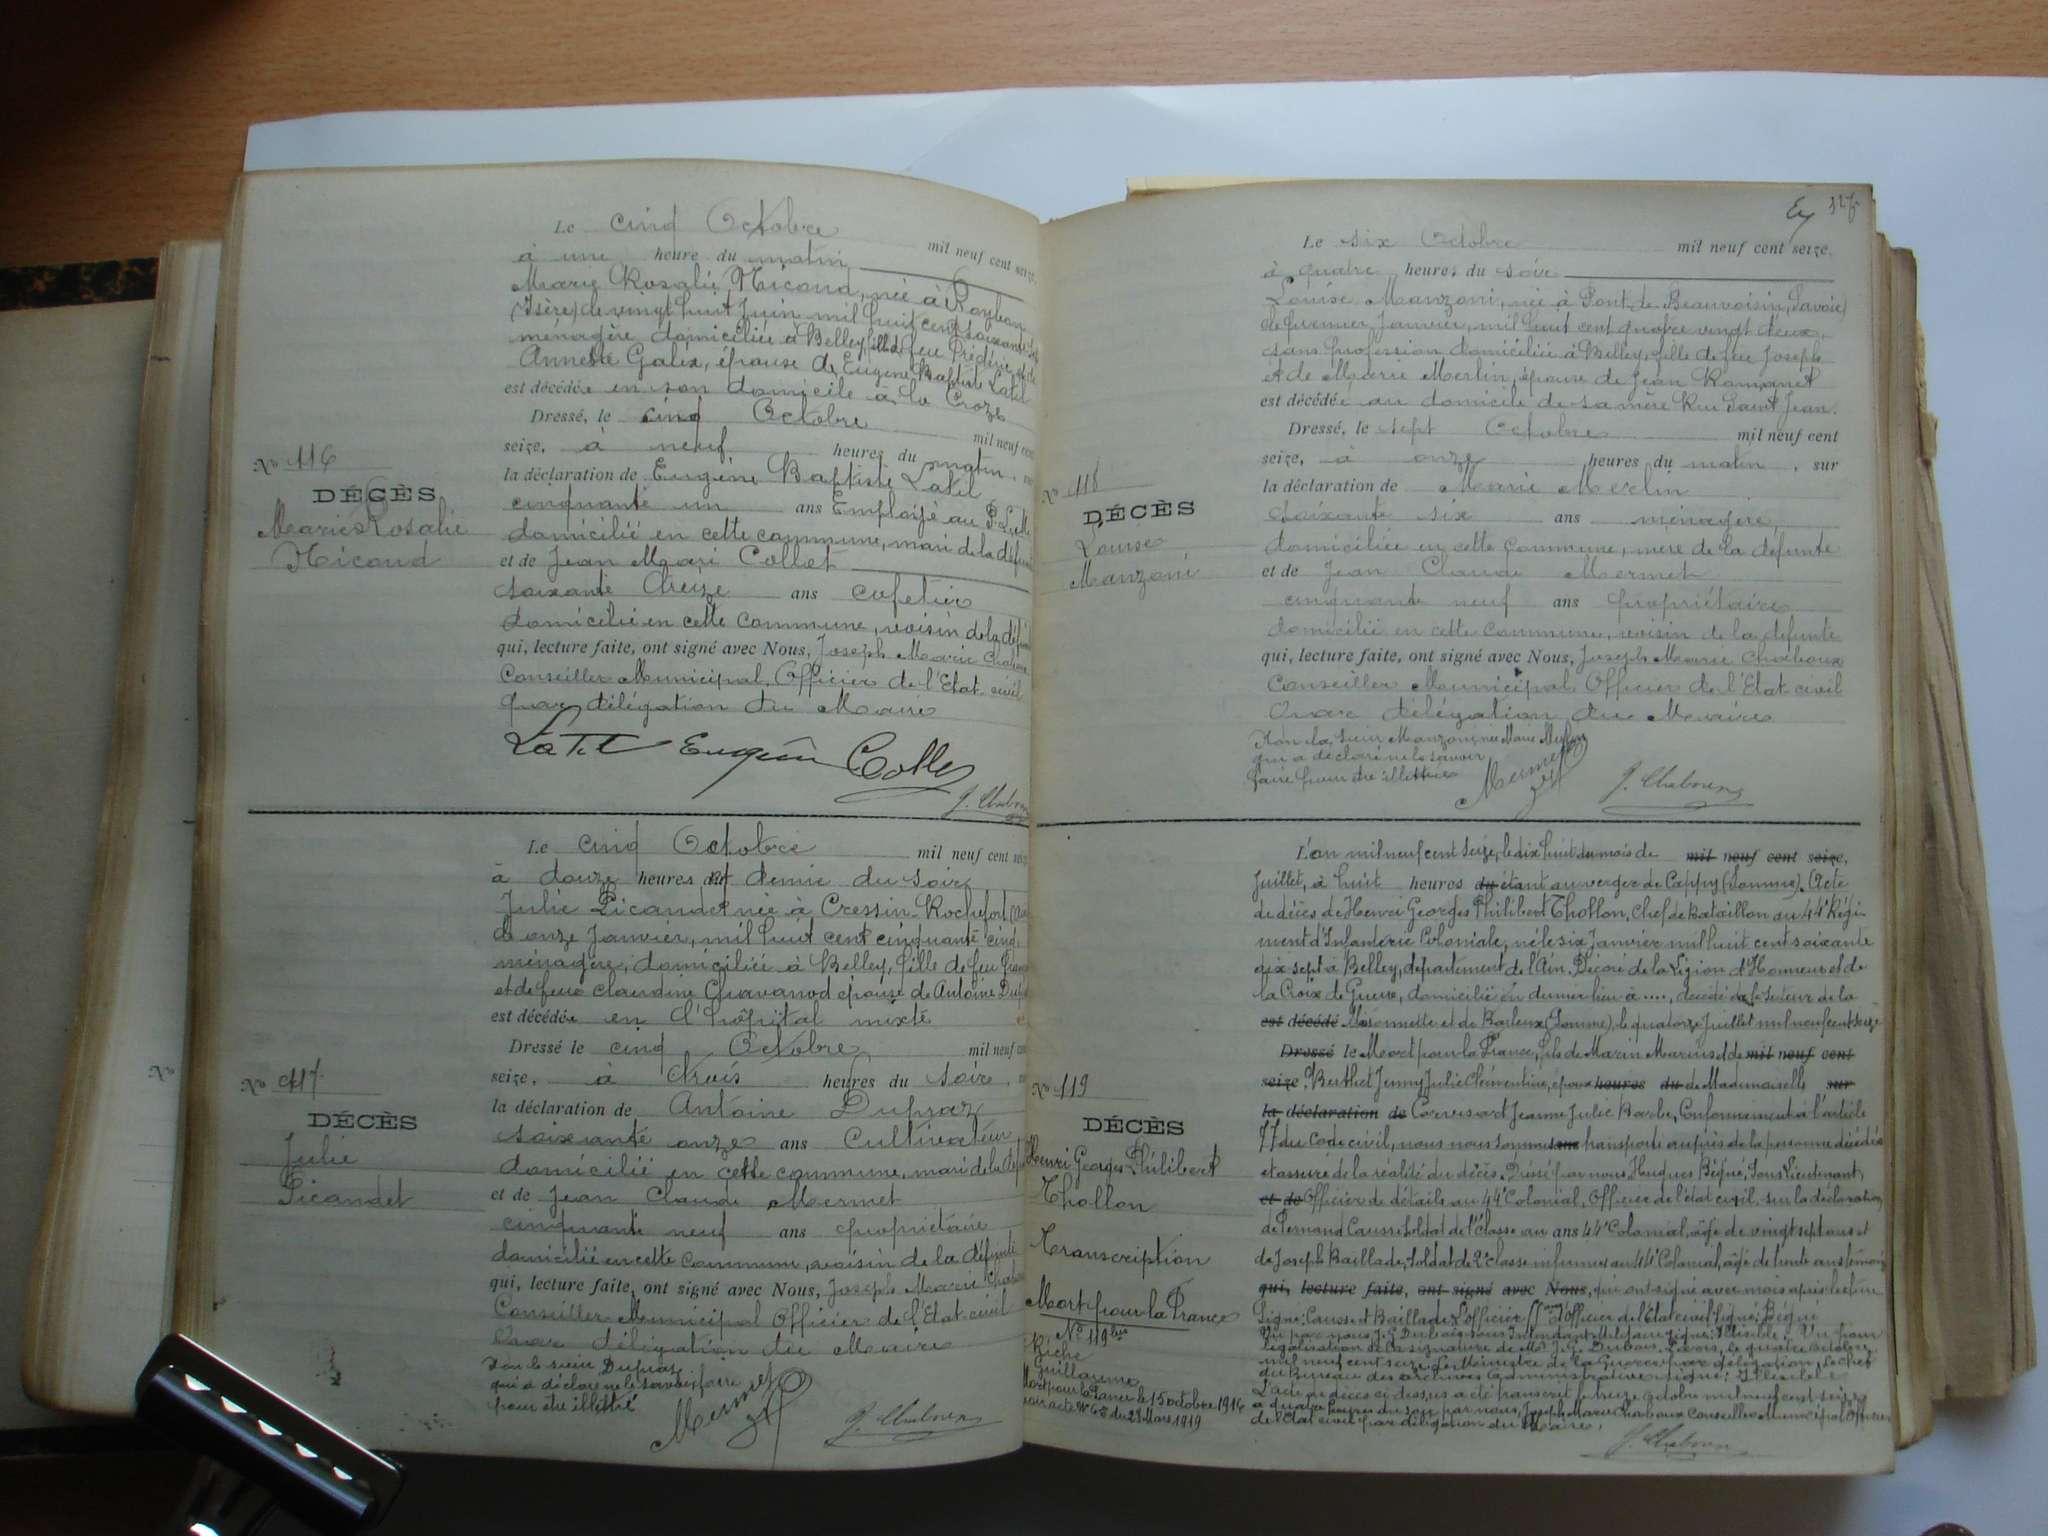 Le cinq Octobre mil neuf cent seize
à une heure du matin
Marie Rosalie Micoud, née à Roybon
(Isère) le vingt huit Juin mil huit cent soixante
ménagère domiciliée à Belley, fille de feu Frédéric et de
Annette Galix, épouse de Eugène Baptiste Latil
est décédée en son domicile à la Croze
Dressé, le cinq Octobre mil neuf cent
seize, à neuf heures du matin,
la déclaration de Eugène Baptiste Latil
cinquante un ans Employé au P.L.M.
domicilié en cette commune, mari de la défunte
et de Jean Mari Collet
soixante treize ans cafetier
domicilié en cette commune, voisin de la défunte
qui, lecture faite, ont signé avec Nous, Joseph Marie Charboux
Conseiller Municipal, Officier de l'Etat-civil
par délégation du Maire
Latil Eugène Collet
J. Charboux
No 116
DÉCÈS
Marie Rosalie
Micoud
Le cinq Octobre mil neuf cent seize
à douze heures et demie du soir
Julie Picandet née à Cressin-Rochefort (Ain)
le onze Janvier, mil huit cent cinquante cinq
ménagère, domiciliée à Belley, fille de feu
et de feue Claudine Chavanod épouse de Antoine Dupraz
est décédée en l'hôpital mixte
Dressé le cinq Octobre, mil neuf cent
seize, à trois heures du soir,
la déclaration de Antoine Dupraz
soixante onze ans Cultivateur,
domicilié en cette commune, mari de la défunte
et de Jean Claude Mermet
cinquante neuf ans propriétaire
domicilié en cette commune, voisin de la défunte
qui, lecture faite, ont signé avec Nous, Joseph Marie Charboux
Conseiller Municipal Officier de l'Etat-civil
par délégation du Maire
Non le sieur Dupraz
qui a déclaré ne le savoir faire
pour être illettré
Mermet
J. Charboux
No 117
DÉCÈS
Julie
Picandet
No
Le six Octobre mil neuf cent seize.
à quatre heures du soir
Louise Manzoni, née à Pont-de-Beauvoisin (Savoie)
le premier Janvier, mil huit cent quatre vingt deux,
sans profession domiciliée à Belley, fille de feu Joseph
et de Marie Merlin, épouse de Jean Romanet
est décédée au domicile de sa mère Rue Saint Jean.
Dressé, le sept Octobre mil neuf cent
seize, à onze heures du matin, sur
la déclaration de Marie Merlin
soixante six ans ménagère,
domiciliée en cette commune, mère de la défunte
et de Jean Claude Mermet
cinquante neuf ans propriétaire
domicilié en cette commune, voisin de la défunte
qui, lecture faite, ont signé avec Nous, Joseph Marie Charboux
Conseiller Municipal Officier de l'Etat civil
par délégation du Maire
Non la sieur Manzoni, née Marie Merlin
qui a déclaré ne le savoir
faire pour être illettrée
Mermet
J. Charboux
No 118
DÉCÈS
Louise
Manzoni
L'an mil neuf cent seize, le dix huit du mois de mil neuf cent seize,
Juillet, à huit heures du étant au verger de Cappy (Somme). Acte
de décès de Henri Georges Philibert Thollon, Chef de Bataillon au 44e Régi-
ment d'Infanterie Coloniale, né le six Janvier mil huit cent soixante
dix sept à Belley, département de l'Ain. Décoré de la Légion d'Honneur et de
la Croix de Guerre, domicilié en dernier lieu à ...., décédé secteur de la
est décédé Maisonnette et de Barleux (Somme), le quatorze Juillet mil neuf cent seize
Dressé le Mort pour la France, fils de Marin Marius et de mil neuf cent
seize, Berthet Jenny Julie Clémentine, époux heures du de Mademoiselle sur
la déclaration de Corvisart Jeanne Julie Barbe, Conformément à l'article
77 du Code civil, nous nous sommes transporté auprès de la personne décédée
et assuré de la réalité du décès. Dressé par nous, Hugues Bégué, Sous Lieutenant,
et de Officier de détails au 44e Colonial, Officier de l'état civil, sur la déclaration
de Fernand Causse, soldat de 1e classe au ans 44e Colonial, âgé de vingt sept ans et
de Joseph Baillade, Soldat de 2e classe infirmier au 44e Colonial, âgé de trente ans témoins
qui, lecture faite, ont signé avec Nous, qui ont signé avec mois après lecture
Signé: Causse et Baillade. L'officier Officier de l'Etat civil signé: Bégué
Vu par nous J. G. Dubois, Sous Intendant Militaire signé: Illisible. Vu pour
légalisation de la signature de Mr J. G. Dubois. Paris, le quatre octobre
mil neuf cent seize, le Ministre de la Guerre, par délégation, le chef
du Bureau des archives Administratives, signé: Illisible
L'acte de décès ci-dessus a été transcrit le treize octobre mil neuf cent seize
à quatre heures du soir par nous, Joseph Marie Charboux Conseiller Municipal Officier
de l'Etat civil par délégation du Maire.
J. Charboux
No 119
DÉCÈS
Henri Georges Philibert
Thollon
Transcription
Mort pour la France
No 119 bis
Riche
Guillaume
Mort pour la France le 15 octobre 1916
voir acte No 63 du 29 Mars 1919